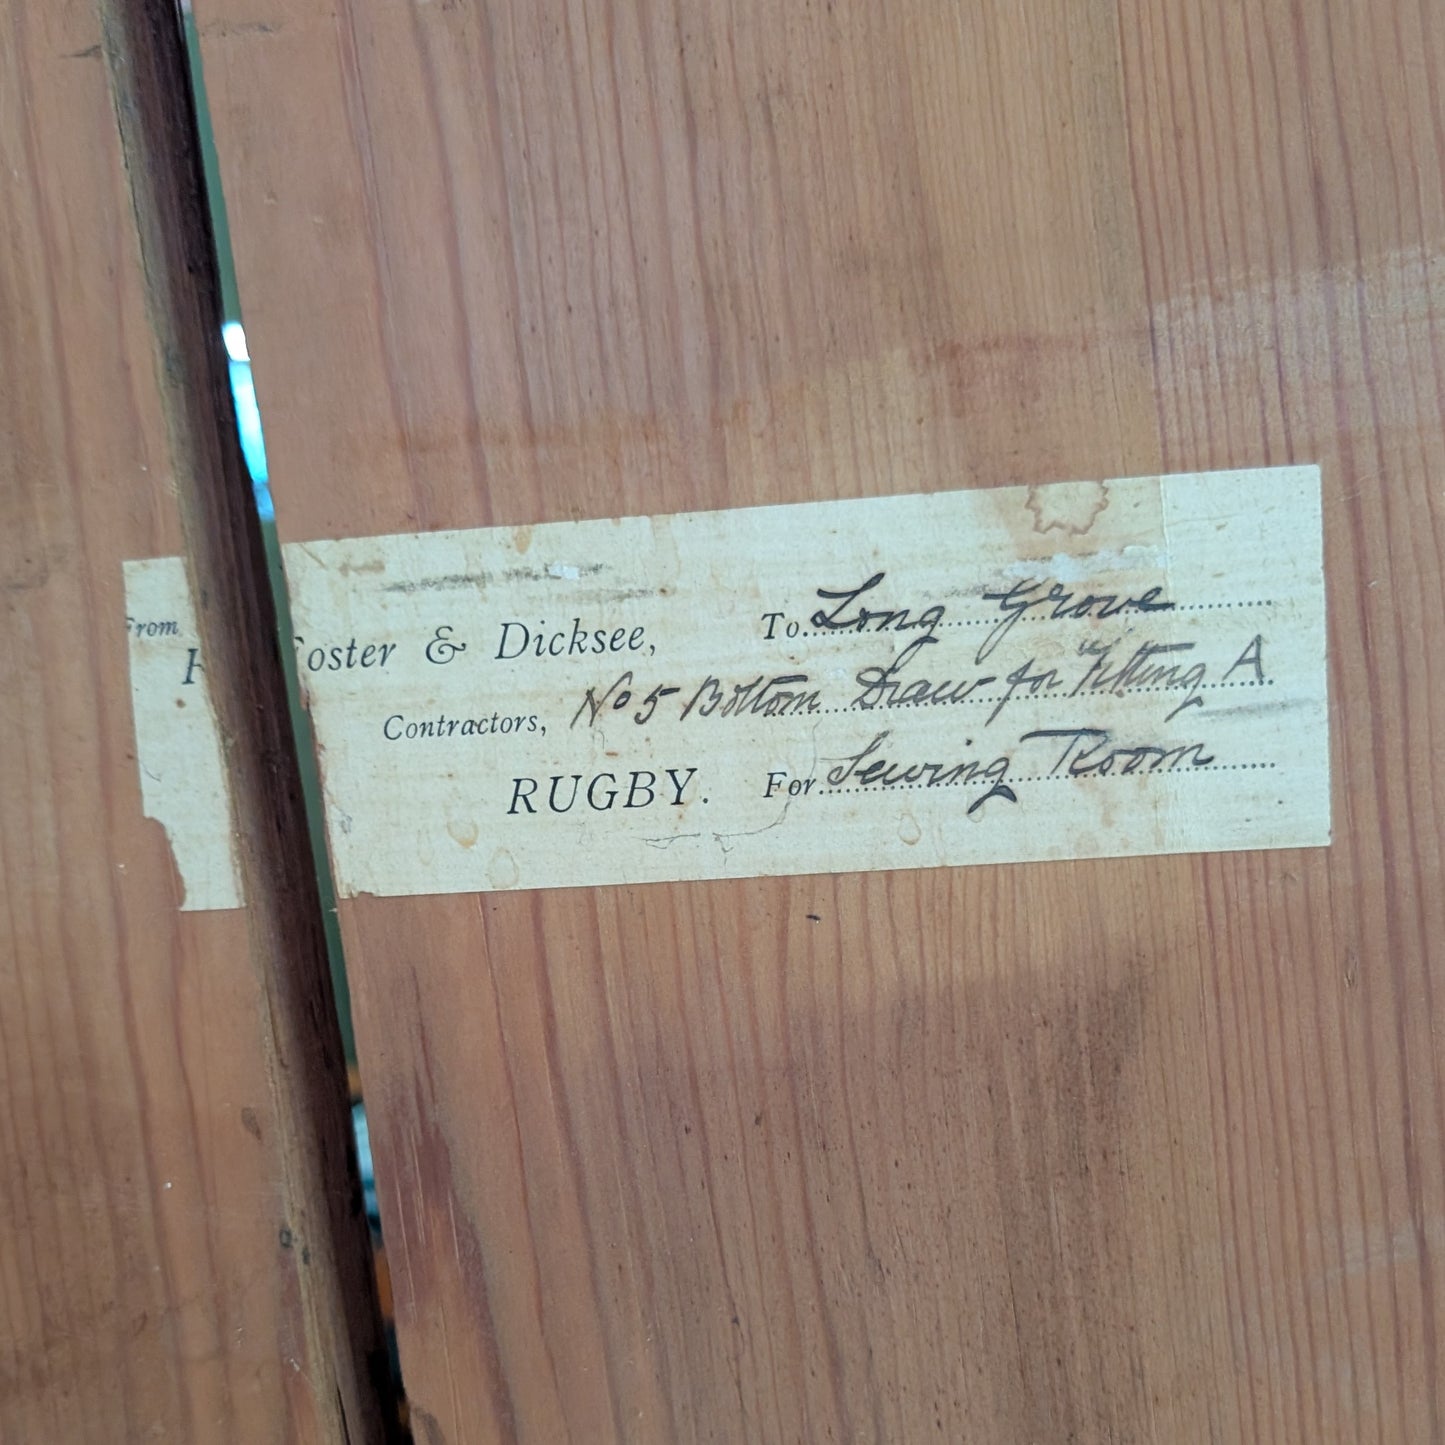 From
Foster & Dicksee, To Long Grove
Contractors, No 5 Bottom Draw for "Fitting A
RUGBY. For Sewing Room